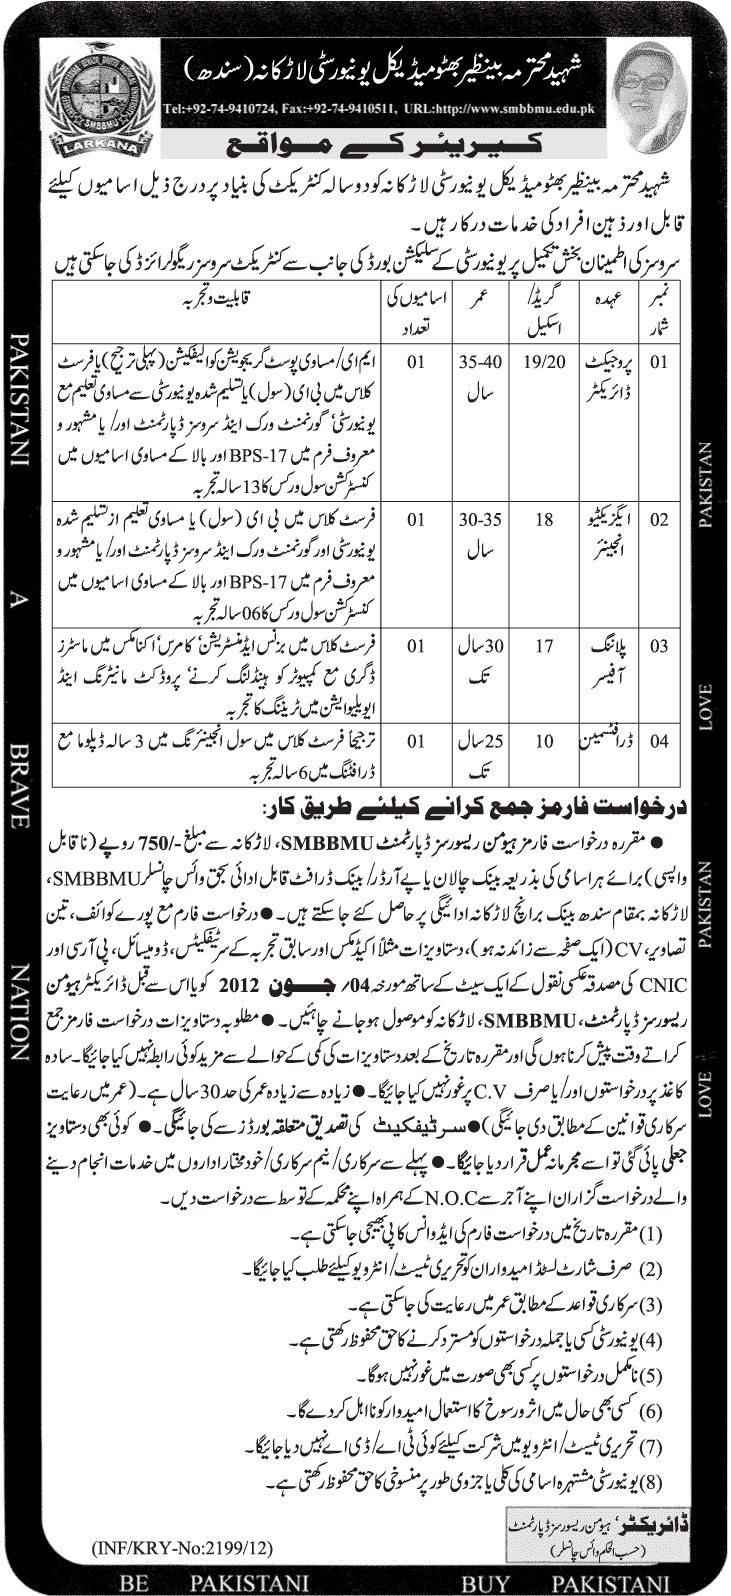 شہید محترمہ بینظیر بھٹو میڈیکل یونیورسٹی لاڑکانہ (سندھ)
Tel:+92-74-9410724, Fax:+92-74-9410511, URL:http://www.smbbmu.edu.pk
LARKANA
کیریئر کے مواقع
شہید محترمہ بینظیر بھٹو میڈیکل یونیورسٹی لاڑکانہ کو دو سالہ کنٹریکٹ کی بنیاد پر درج ذیل اسامیوں کیلئے
قابل اور ذہین افراد کی خدمات درکار ہیں۔
سروسز کی اطمینان بخش تکمیل پر یونیورسٹی کے سلیکشن بورڈ کی جانب سے کنٹریکٹ سروسز ریگولرائزڈ کی جاسکتی ہیں
نمبر شمار | عہدہ | گریڈ/ اسکیل | عمر | اسامیوں کی تعداد | قابلیت و تجربہ
01 | پروجیکٹ ڈائریکٹر | 19/20 | 35-40 سال | 01 | ایم ای/مساوی پوسٹ گریجویشن کوالیفکیشن (پہلی ترجیح) یا فرسٹ
کلاس میں بی ای (سول) یا تسلیم شدہ یونیورسٹی سے مساوی تعلیم مع
یونیورسٹی، گورنمنٹ ورک اینڈ سروسز ڈپارٹمنٹ اور/یا مشہور و
معروف فرم میں BPS-17 اور بالا کے مساوی اسامیوں میں
کنسٹرکشن سول ورکس کا 13 سالہ تجربہ
02 | ایگزیکٹیو انجینئر | 18 | 30-35 سال | 01 | فرسٹ کلاس میں بی ای (سول) یا مساوی تعلیم از تسلیم شدہ
یونیورسٹی اور گورنمنٹ ورک اینڈ سروسز ڈپارٹمنٹ اور/یا مشہور و
معروف فرم میں BPS-17 اور بالا کے مساوی اسامیوں میں
کنسٹرکشن سول ورکس کا 06 سالہ تجربہ
03 | پلاننگ آفیسر | 17 | 30 سال تک | 01 | فرسٹ کلاس میں بزنس ایڈمنسٹریشن، کامرس، اکنامکس میں ماسٹرز
ڈگری مع کمپیوٹر کو ہینڈلنگ کرنے، پروڈکٹ مانیٹرنگ اینڈ
ایویلیوایشن میں ٹریننگ کا تجربہ
04 | ڈرافٹسمین | 10 | 25 سال تک | 01 | ترجیحاً فرسٹ کلاس میں سول انجینئرنگ میں 3 سالہ ڈپلوما مع
ڈرافٹنگ میں 6 سالہ تجربہ
درخواست فارمز جمع کرانے کیلئے طریق کار:
● مقررہ درخواست فارمز ہیومن ریسورسز ڈپارٹمنٹ SMBBMU، لاڑکانہ سے مبلغ -/750 روپے (ناقابل
واپسی) برائے ہر اسامی کی بذریعہ بینک چالان یا پے آرڈر/بینک ڈرافٹ قابل ادائی بحق وائس چانسلر SMBBMU،
لاڑکانہ بمقام سندھ بینک برانچ لاڑکانہ ادائیگی پر حاصل کئے جاسکتے ہیں۔ ● درخواست فارم مع پورے کوائف، تین
تصاویر، CV (ایک صفحہ سے زائد نہ ہو)، دستاویزات مثلاً اکیڈمکس اور سابق تجربہ کے سرٹیفکیٹس، ڈومیسائل، پی آر سی اور
CNIC کی مصدقہ عکسی نقول کے ایک سیٹ کے ساتھ مورخہ 04/جون 2012 کو یا اس سے قبل ڈائریکٹر ہیومن
ریسورسز ڈپارٹمنٹ، SMBBMU، لاڑکانہ کو موصول ہو جانے چاہئیں۔ ● مطلوبہ دستاویزات درخواست فارمز جمع
کراتے وقت پیش کرنا ہوں گی اور مقررہ تاریخ کے بعد دستاویزات کی کمی کے حوالے سے مزید کوئی رابطہ نہیں کیا جائیگا۔ سادہ
کاغذ پر درخواستوں اور/یا صرف C.V پر غور نہیں کیا جائیگا۔ ● زیادہ سے زیادہ عمر کی حد 30 سال ہے۔ (عمر میں رعایت
سرکاری قوانین کے مطابق دی جائیگی) ● سرٹیفکیٹ کی تصدیق متعلقہ بورڈز سے کی جائیگی۔ ● کوئی بھی دستاویز
جعلی پائی گئی تو اسے مجرمانہ عمل قرار دیا جائیگا۔ ● پہلے سے سرکاری/نیم سرکاری/خودمختار اداروں میں خدمات انجام دینے
والے درخواست گزاران اپنے آجر سے N.O.C کے ہمراہ اپنے محکمہ کے توسط سے درخواست دیں۔
(1) مقررہ تاریخ میں درخواست فارم کی ایڈوانس کاپی بھیجی جاسکتی ہے۔
(2) صرف شارٹ لسٹڈ امیدواران کو تحریری ٹیسٹ/انٹرویو کیلئے طلب کیا جائیگا۔
(3) سرکاری قواعد کے مطابق عمر میں رعایت کی جاسکتی ہے۔
(4) یونیورسٹی کسی یا جملہ درخواستوں کو مسترد کرنے کا حق محفوظ رکھتی ہے۔
(5) نامکمل درخواستوں پر کسی بھی صورت میں غور نہیں ہوگا۔
(6) کسی بھی حال میں اثر و رسوخ کا استعمال امیدوار کو نااہل کر دے گا۔
(7) تحریری ٹیسٹ/انٹرویو میں شرکت کیلئے کوئی ٹی اے/ڈی اے نہیں دیا جائیگا۔
(8) یونیورسٹی مشتہرہ اسامی کی کلی یا جزوی طور پر منسوخی کا حق محفوظ رکھتی ہے۔
ڈائریکٹر، ہیومن ریسورسز ڈپارٹمنٹ
(حسب الحکم وائس چانسلر)
(INF/KRY-No:2199/12)
PAKISTANI A BRAVE NATION
BE PAKISTANI BUY PAKISTANI
LOVE PAKISTAN LOVE PAKISTAN